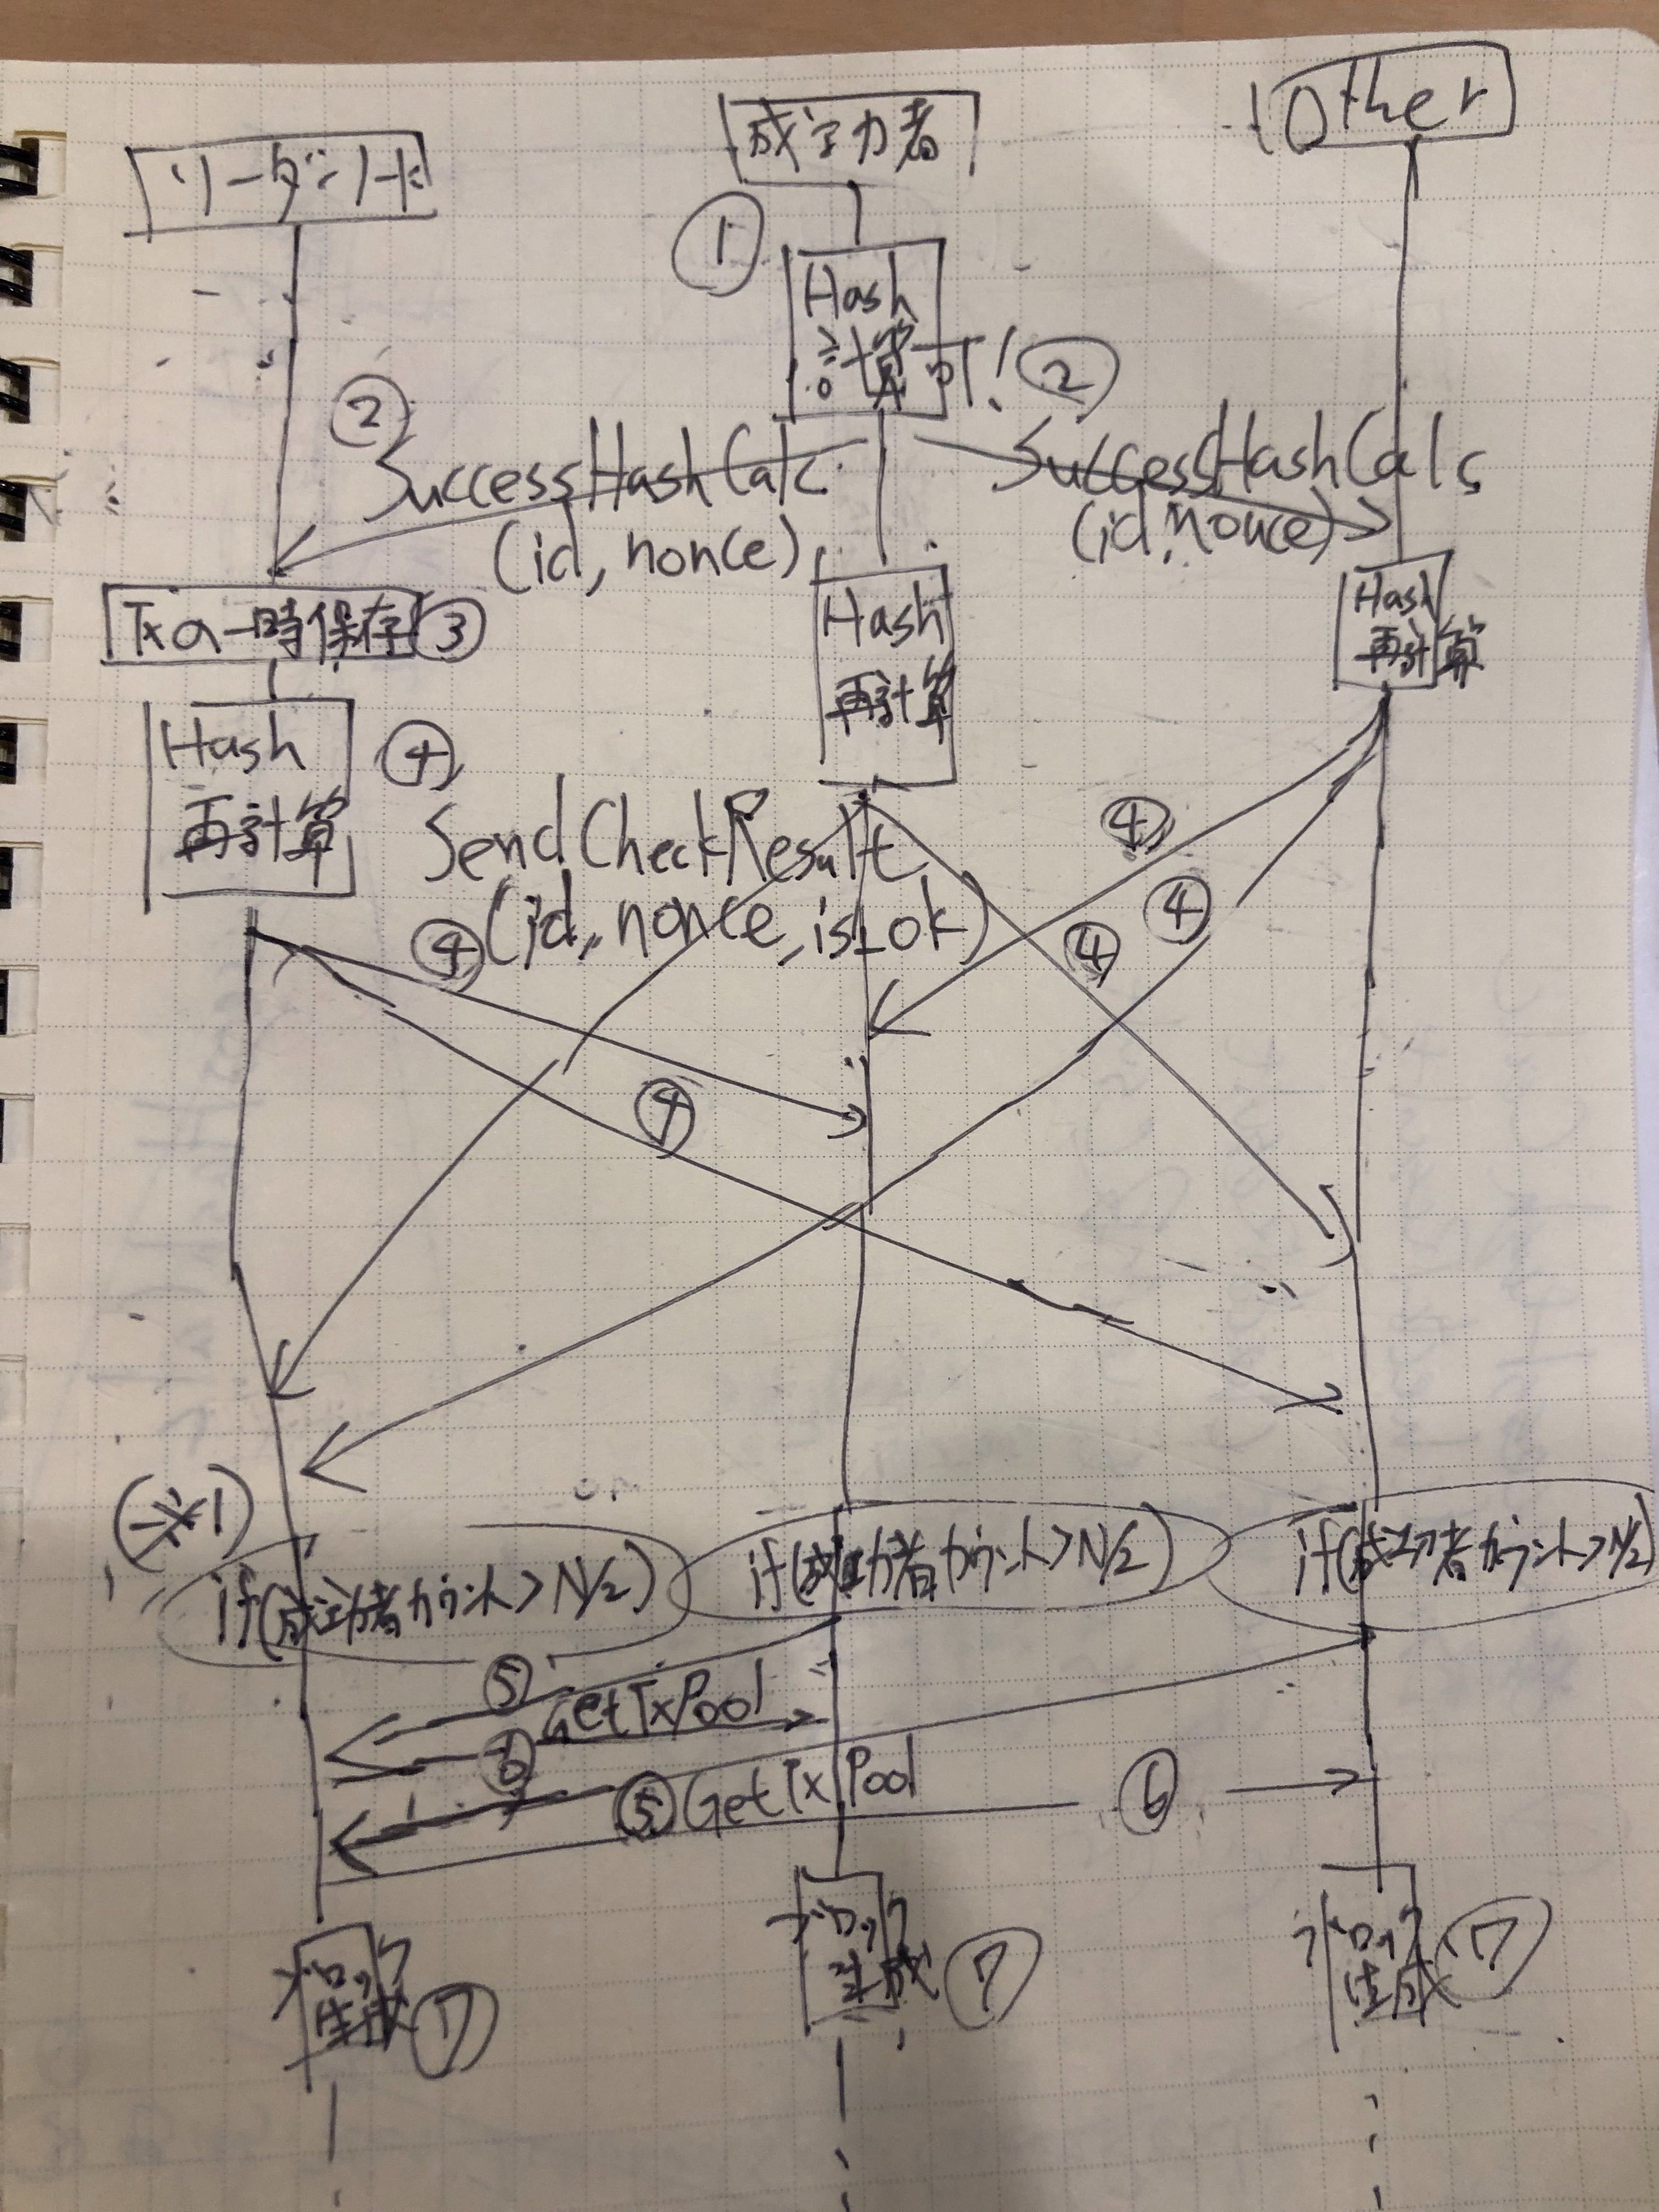 リーダーノード
成功者
Other
①
Hash
計算可!
②
SuccessHashCalc
(id, nonce)
②
SuccessHashCalc
(id, nonce)
Txの一時保存
③
Hash
再計算
Hash
再計算
Hash
再計算
④
SendCheckResult
(id, nonce, is_ok)
④
④
④
④
④
(※1)
if(成功者カウント>N/2)
if(成功者カウント>N/2)
if(成功者カウント>N/2)
⑤
GetTxPool
⑥
⑤GetTxPool
⑥
ブロック
生成
⑦
ブロック
生成
⑦
ブロック
生成
⑦